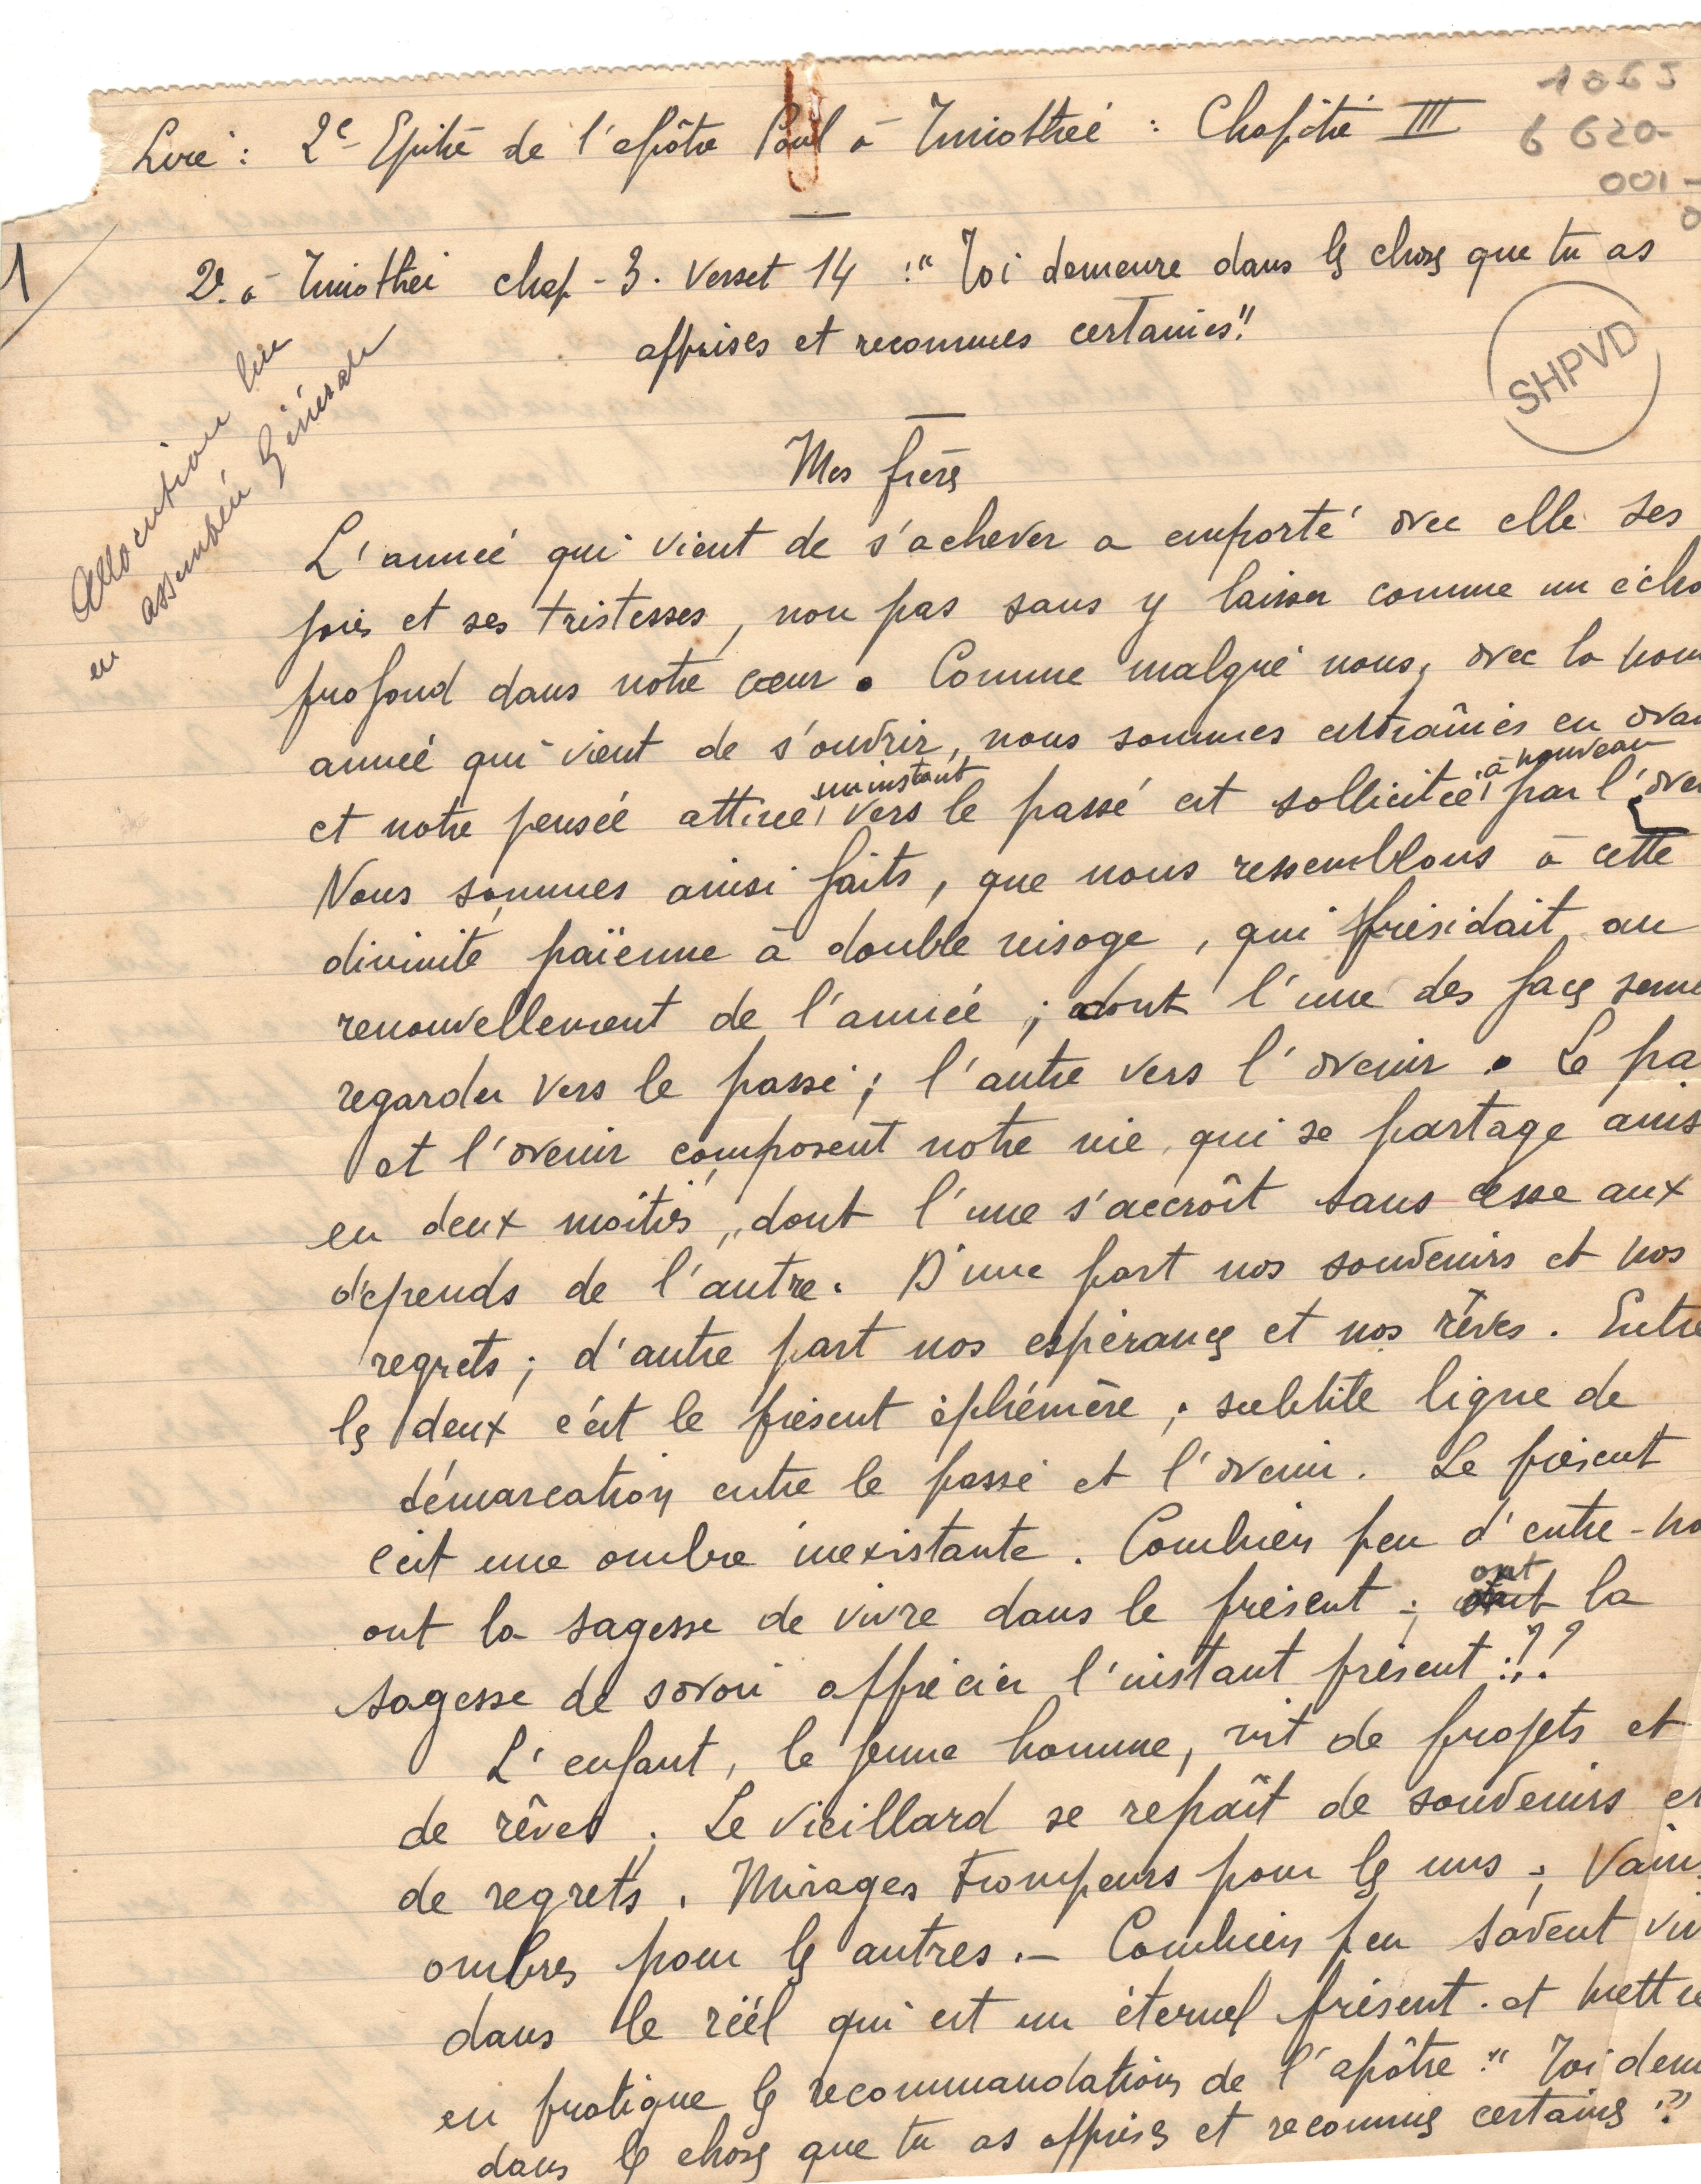 1065
Lire : 2e Epitre de l'apôtre Paul à Timothée : Chapitre III
6 620
001 -
1/
2e à Timothée chap - 3. Verset 14 : " Toi demeure dans les choses que tu as
apprises et reconnues certaines "
SHPVD
Allocution lue
en assemblée Générale
Mes frères
L'année qui vient de s'achever a emporté avec elle ses
joies et ses tristesses, non pas sans y laisser comme un écho
profond dans notre cœur. Comme malgré nous, avec la nou
année qui vient de s'ouvrir, nous sommes entraînés en avan
et notre pensée attirée un instant vers le passé est sollicitée à nouveau par l'aven
Nous sommes ainsi faits, que nous ressemblons à cette
divinité païenne à double visage, qui présidait au
renouvellement de l'année ; dont l'une des faces sem
regarder vers le passé ; l'autre vers l'avenir. Le pa
et l'avenir composent notre vie, qui se partage ains
en deux moitiés, dont l'une s'accroît sans cesse aux
dépends de l'autre. D'une part nos souvenirs et nos
regrets ; d'autre part nos espérances et nos rêves. Entre
les deux c'est le présent éphémère ; subtile ligne de
démarcation entre le passé et l'avenir. Le présent
c'est une ombre inexistante. Combien peu d'entre-no
ont la sagesse de vivre dans le présent ; ont la
sagesse de savoir apprécier l'instant présent : !?
L'enfant, le jeune homme, vit de projets et
de rêves. Le vieillard se repaît de souvenirs et
de regrets. Mirages trompeurs pour les uns ; Vain
ombres pour les autres. - Combien peu savent viv
dans le réél qui est un éternel présent. et mettre
en pratique les recommandations de l'apôtre " Toi dem
dans les choses que tu as apprises et reconnues certaines "?